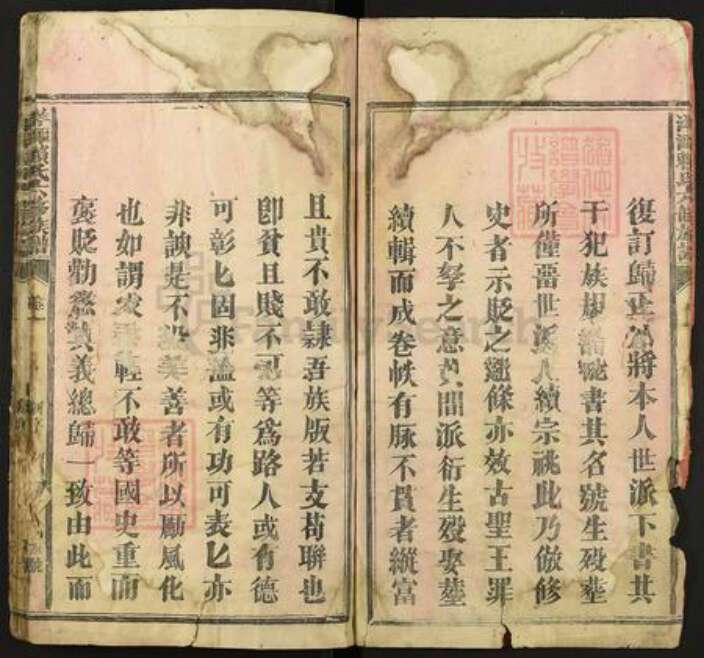 復訂歸正仍將本人世派下書其
干犯族規譜 書其名號生歿塟
所僅留世派入續宗祧此乃倣修
史者示貶之遺條亦效古聖王罪
人不孥之意其間派衍生歿娶塟
續輯而成卷帙有脉不貫者縱富
且貴不敢隷吾族版若支苟聯也
卽貧且賤不忍等爲路人或有德
可彰匕固非濫或有功可表匕亦
非諛是不没美善者所以勵風化
也如謂家乘輕不敢等國史重而
褒貶勸懲其義總歸一致由此而